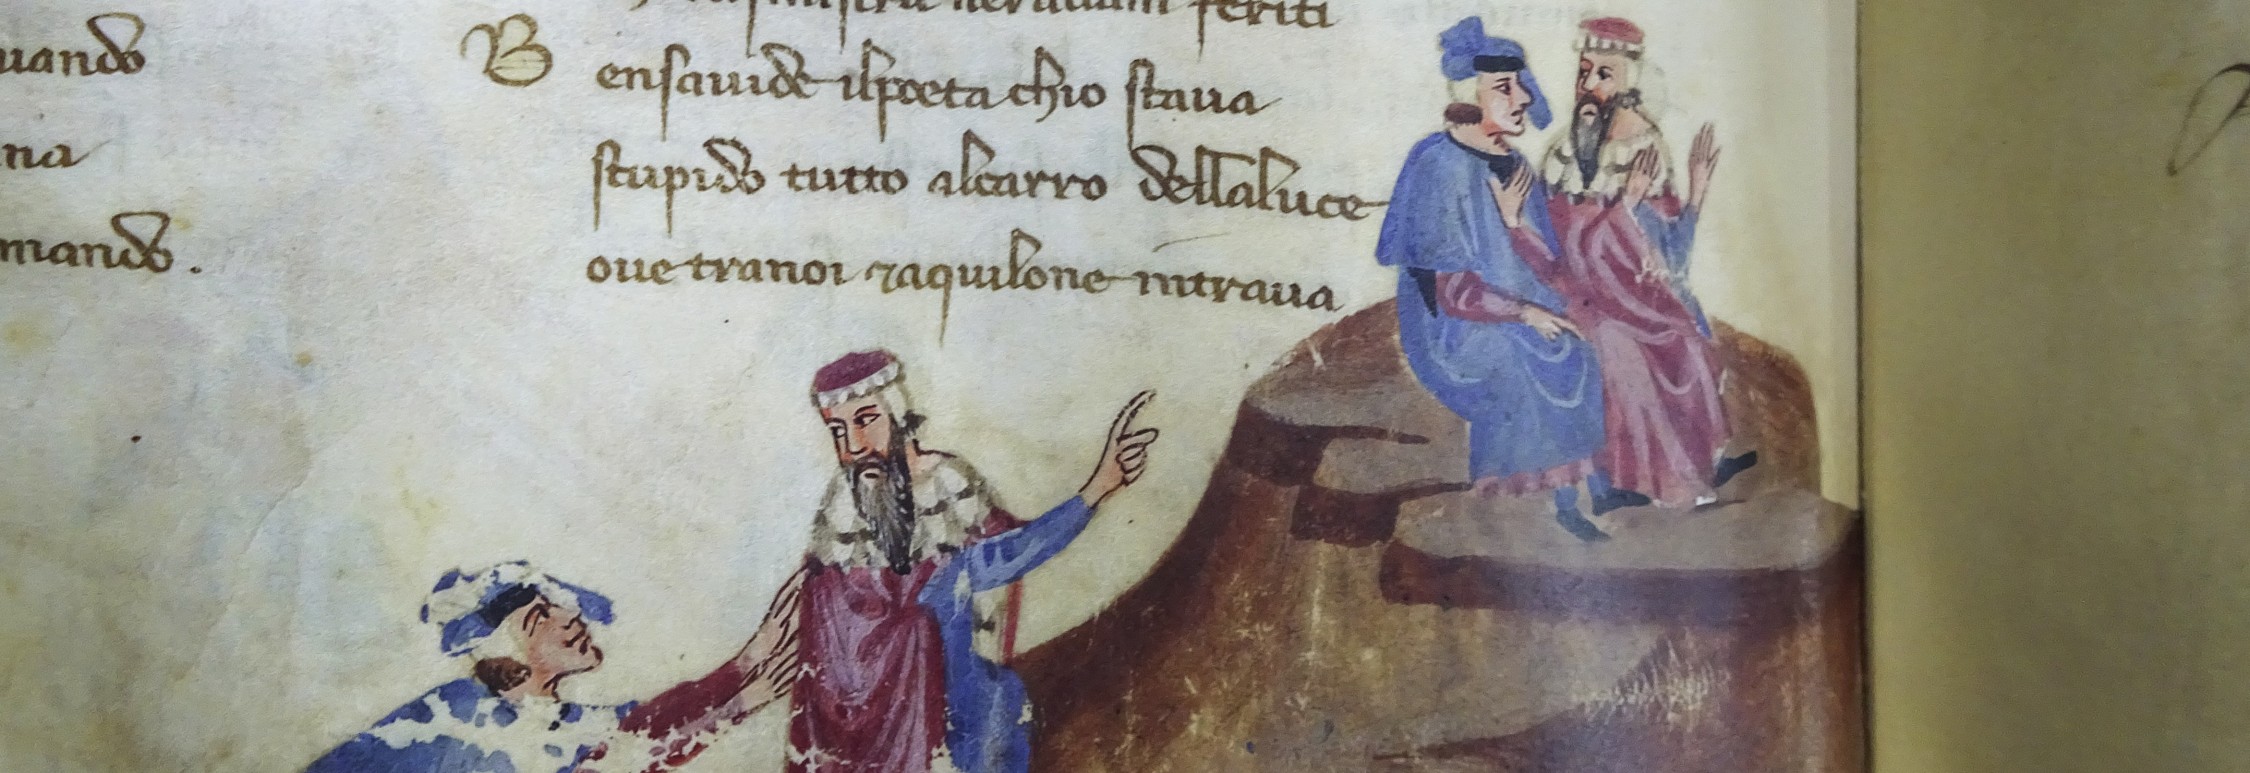 uando
na
mando.
feriti
B
ensauide ilpoeta chio staua
stupido tutto alcarro dellaluce
oue tranoi ⁊aquilone intraua